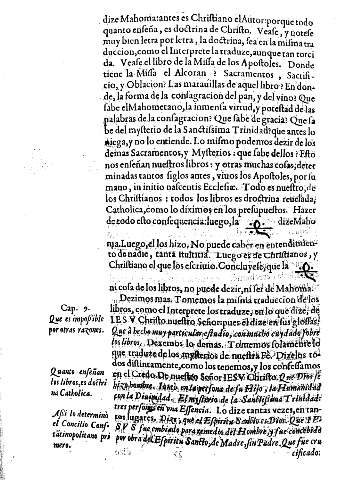 dize Mahoma: antes es Christiano el Autor: porque todo
quanto enseña, es doctrina de Christo. Vease, y notese
muy bien letra por letra, la doctrina, sea en la misma tra
duccion, como el Interprete la traduze, aunque tan torci
da. Vease el libro de la Missa de los Apostoles. Donde
tiene la Missa el Alcoran? Sacramentos, Sacrifi-
cio, y Oblacion? Las marauillas de aquel libro? En don-
de, la forma de la consagracion del pan, y del vino? Que
sabe el Mahometano, la immensa virtud, y potestad de las
palabras de la consagracion? Que sabe de gracia? Que sa
be del mysterio de la Sanctissima Trinidad? que antes lo
niega, y no lo entiende. Lo mismo podemos dezir de los
demas Sacramentos, y Mysterios: que sabe dellos? Esto
nos enseñan nuestros libros: y otras muchas cosas; deter
minadas tantos siglos antes, viuos los Apostoles, por su
mano, in initio nascentis Ecclesiæ. Todo es nuestro, de
los Christianos: todos los libros es droctrina reuelada,
Catholica, como lo diximos en los presupuestos. Hazer
de todo esto consequencia: luego, la dize Maho
ma. Luego, el los hizo, No puede caber en entendimien-
to de nadie, tanta stulticia. Luego es de Christianos, y
Christiano el que los escriuio. Concluyese, que la
ni cosa de los libros, no puede dezir, ni ser de Mahoma.
Cap. 9.
Que es impossible
por otras razones.
Dezimos mas. Tomemos la misma traduccion de los
libros, como el Interprete los traduze, en lo que dize, de
IESV Christo nuestro Señor: pues el dize en sus glosas;
Que à hecho muy particular estudio, con mucho cuydado sobre
los libros. Dexemos lo demas. Tomemos solamente lo
que traduze de los mysterios de nuestra Fè. Dizelos to-
dos distintamente, como los tenemos, y los confessamos
en el Credo. De nuestro Señor IESV Christo. Que Dios se
hizo hombre. Iuntò en la persona de su Hijo, la Humanidad
con la Diuinidad. El mysterio de la Sanctissima Trinidad:
tres personas en vna Essencia. Lo dize tantas vezes, en tan-
tos lugares. Dize; que el Espiritu Sancto es Dios. Que IE
SVS fue embiado para remedio del Hombre, y fue concebido
por obra del Espiritu Sancto, de Madre, sin Padre. Que fue cru
cificado:
Quanto enseñan
los libros, es doctri
na Catholica.
Assi lo determinò
el Concilio Cons-
tãtinopolitano pri
mero.